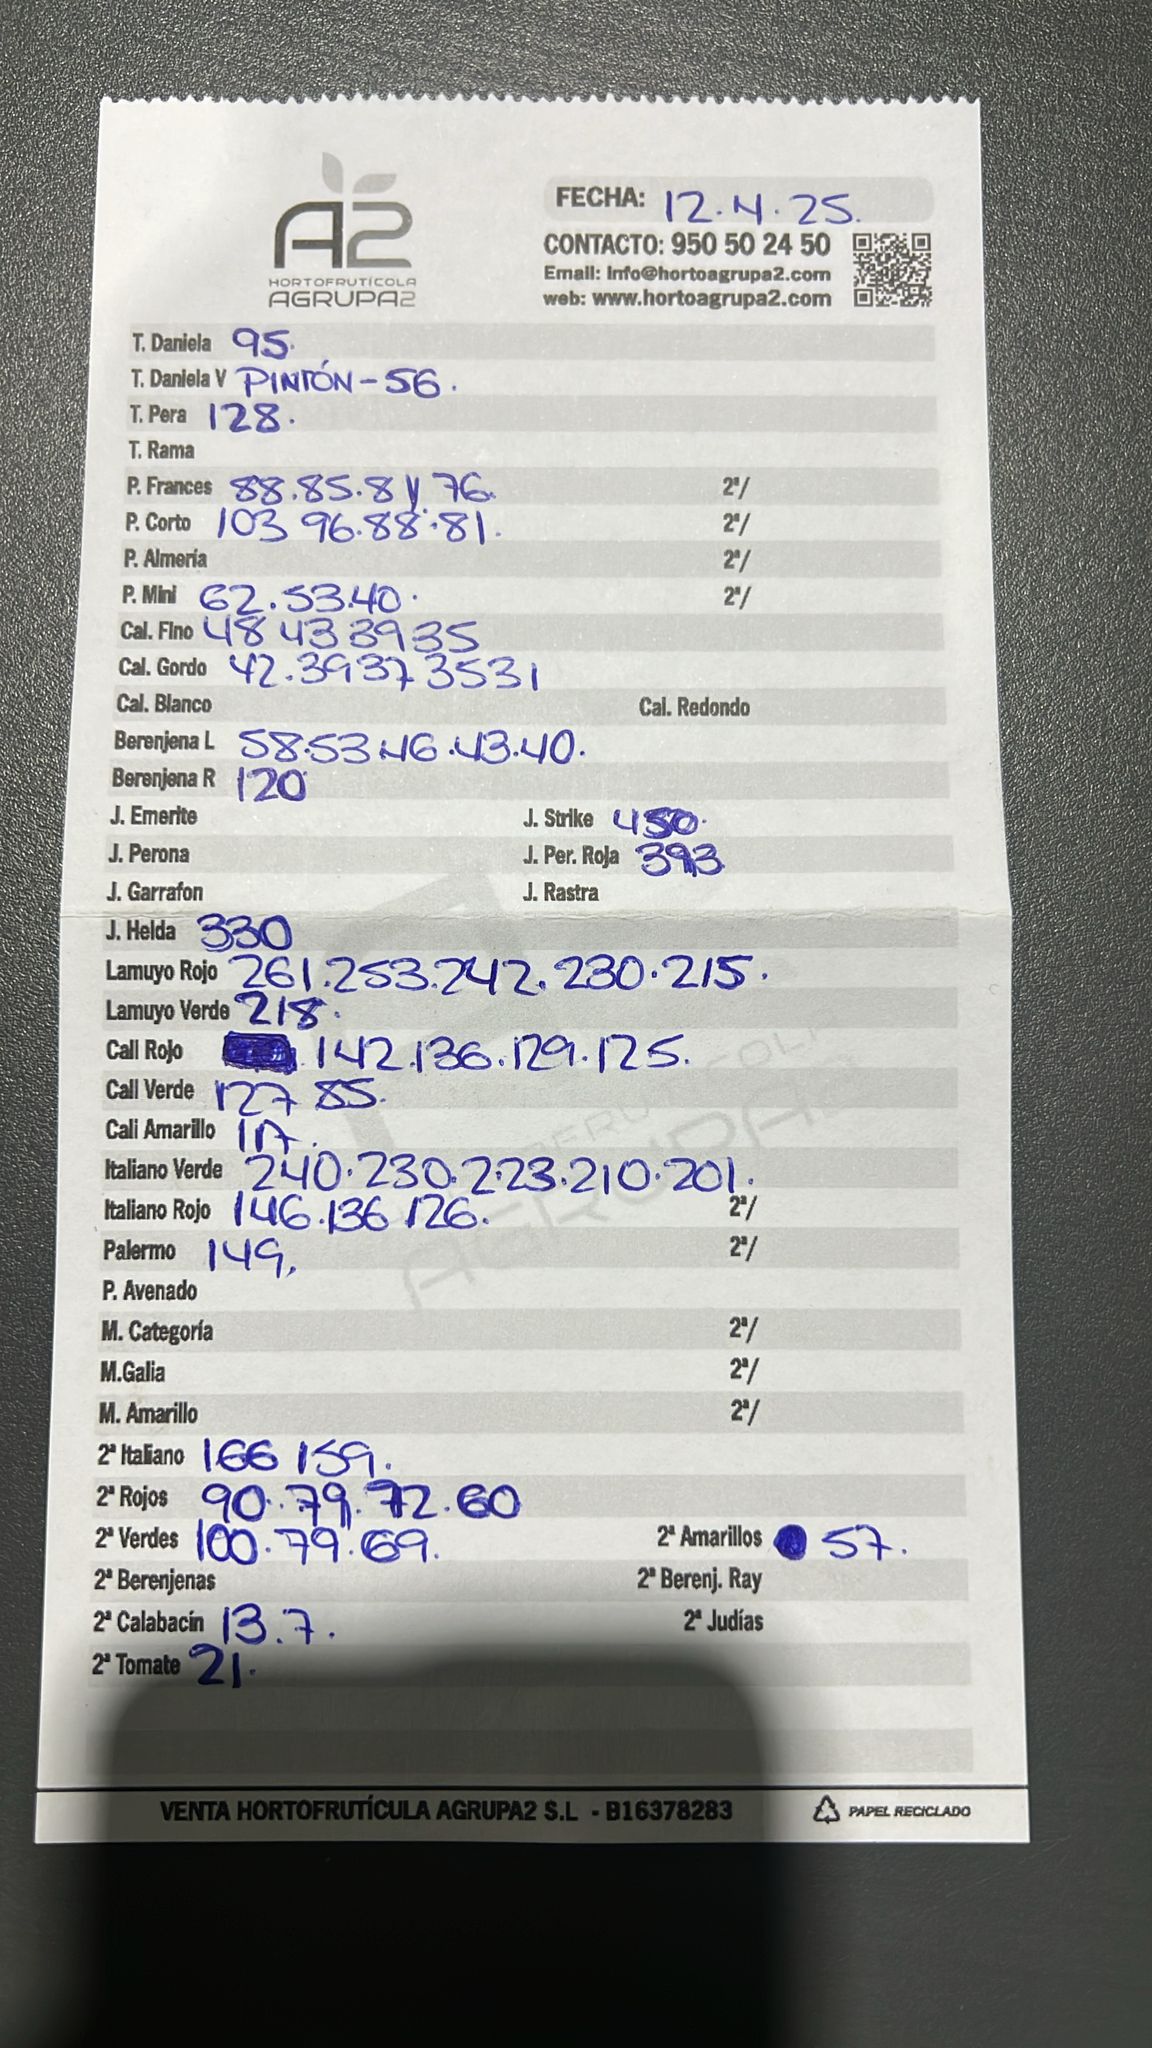 A2
HORTOFRUTÍCOLA
AGRUPA2
FECHA: 12.4.25.
CONTACTO: 950 50 24 50
Email: info@hortoagrupa2.com
web: www.hortoagrupa2.com
T. Daniela 95.
T. Daniela V PINTÓN-56.
T. Pera 128.
T. Rama
P. Frances 88.85.81/ 76. 2ª/
P. Corto 103 96.88.81. 2ª/
P. Almería 2ª/
P. Mini 62.53.40. 2ª/
Cal. Fino 48 43 39 35
Cal. Gordo 42.39 37 35 31
Cal. Blanco Cal. Redondo
Berenjena L 58.53.46.43.40.
Berenjena R 120
J. Emerite J. Strike 450.
J. Perona J. Per. Roja 393
J. Garrafon J. Rastra
J. Helda 330
Lamuyo Rojo 261.253.242.230.215.
Lamuyo Verde 218.
Cali Rojo 142.136.129.125.
Cali Verde 127 85.
Cali Amarillo
Italiano Verde 240.230.223.210.201.
Italiano Rojo 146.136 126. 2ª/
Palermo 149. 2ª/
P. Avenado
M. Categoría 2ª/
M.Galia 2ª/
M. Amarillo 2ª/
2ª Italiano 166 159.
2ª Rojos 90.79.72.60
2ª Verdes 100.79.69. 2ª Amarillos 57.
2ª Berenjenas 2ª Berenj. Ray
2ª Calabacín 13.7. 2ª Judías
2ª Tomate 21.
VENTA HORTOFRUTÍCULA AGRUPA2 S.L - B16378283 PAPEL RECICLADO